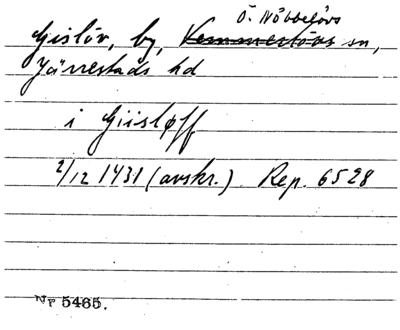 Ö. Nöbbelövs
Gislöv, by, Vemmerlövs sn,
Järrestads hd
i Giisløff
2/12 1431 (avskr.) Rep. 6528
Nr 5465.